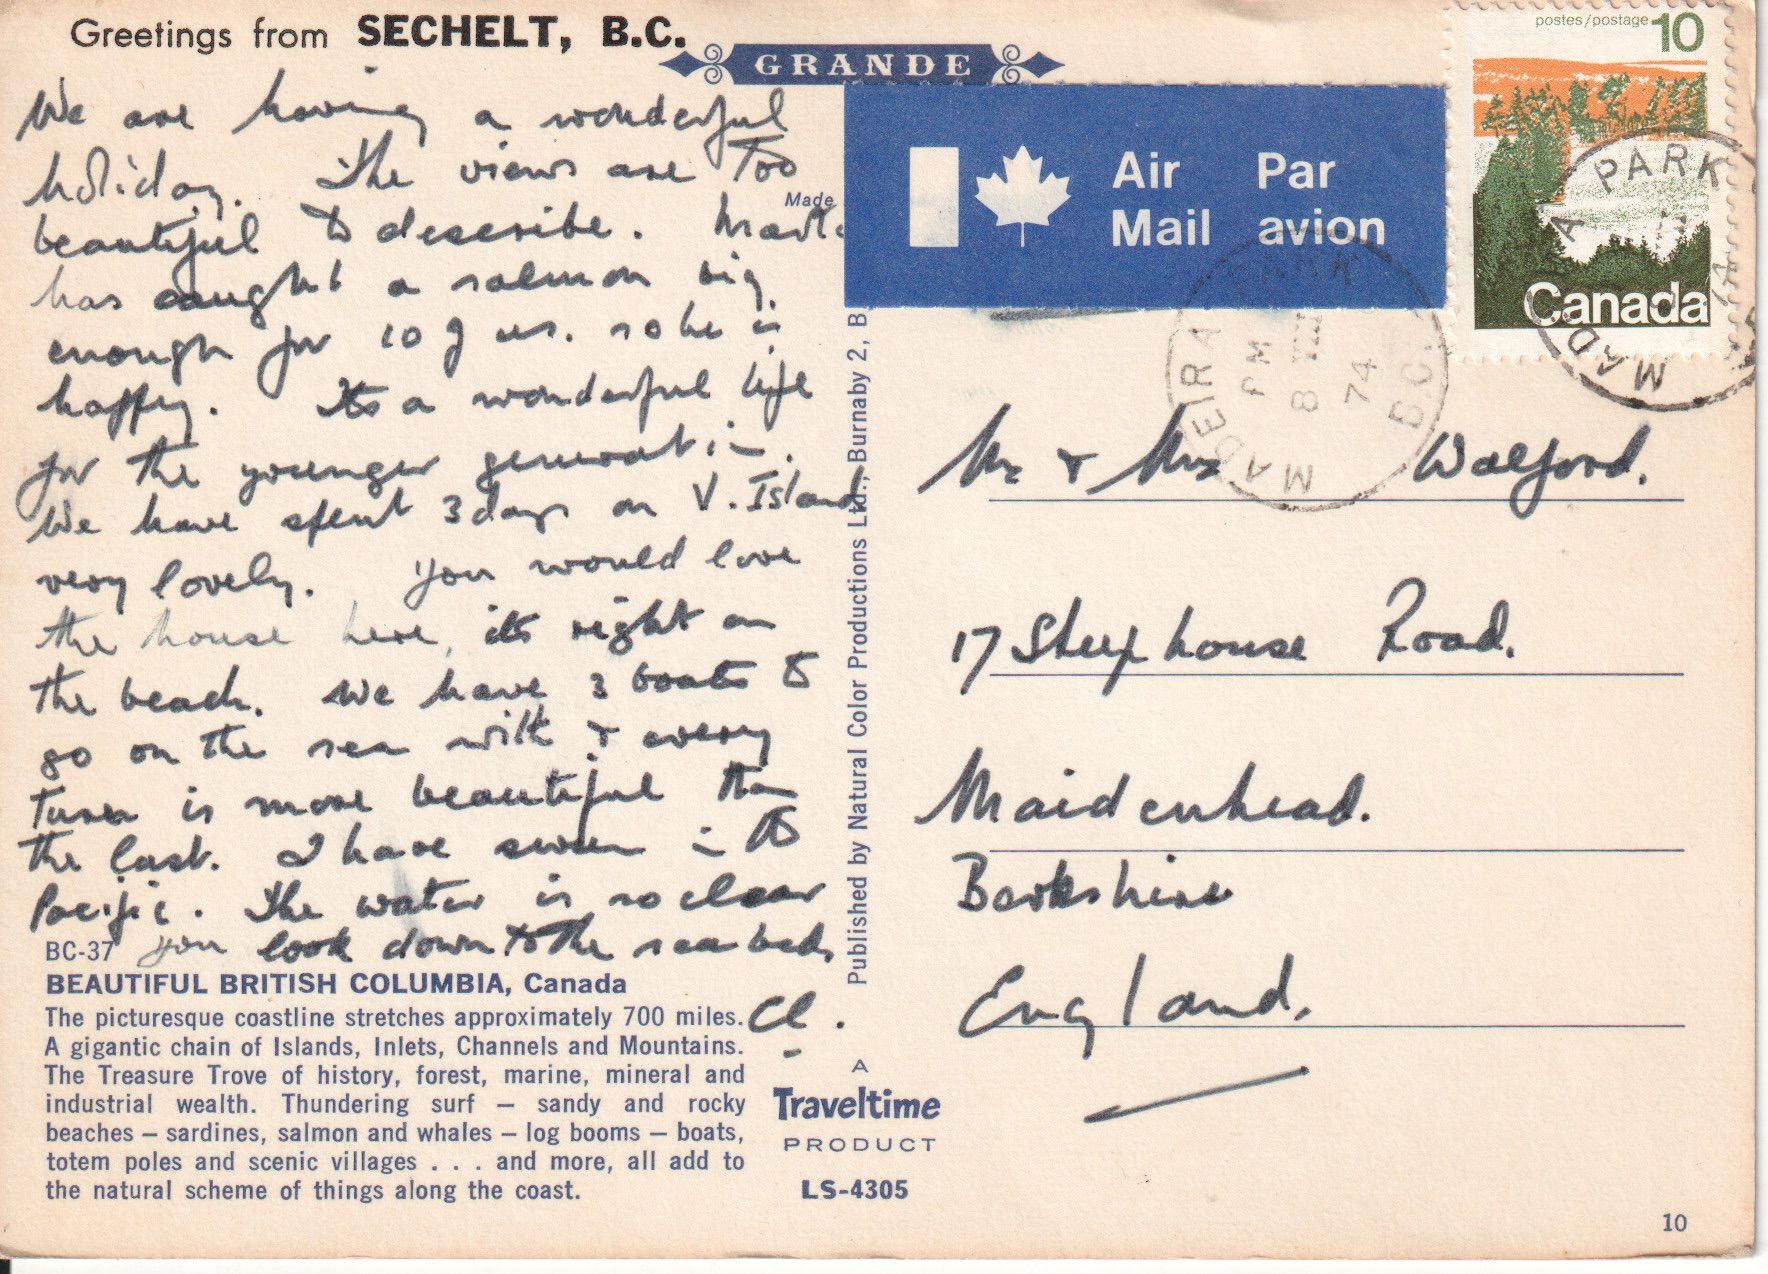 Greetings from SECHELT, B.C.
GRANDE
We are having a wonderful
holiday. The views are Too
beautiful to describe. Mark
has caught a salmon big
enough for 10 of us. so he is
happy. Its a wonderful life
for the younger generation.
We have spent 3 days on V. Island
very lovely. You would love
the house here, its right on
the beach. We have 3 boats &
go on the sea with & every
is more beautiful than
the last. I have swum in the
Pacific. The water is so clear
you look down to the sea bed.
Cl.
BC-37
BEAUTIFUL BRITISH COLUMBIA, Canada
The picturesque coastline stretches approximately 700 miles.
A gigantic chain of Islands, Inlets, Channels and Mountains.
The Treasure Trove of history, forest, marine, mineral and
industrial wealth. Thundering surf – sandy and rocky
beaches – sardines, salmon and whales – log booms – boats,
totem poles and scenic villages . . . and more, all add to
the natural scheme of things along the coast.
Made
Published by Natural Color Productions Ltd., Burnaby 2, B
A
Traveltime
PRODUCT
LS-4305
Air Mail
Par avion
postes/postage 10
Canada
MADEIRA PARK
B.C.
PM
8 VIII
74
MADEIRA PARK
Mr & Mrs Walford.
17 Sheephouse Road.
Maidenhead.
Berkshire
England.
10